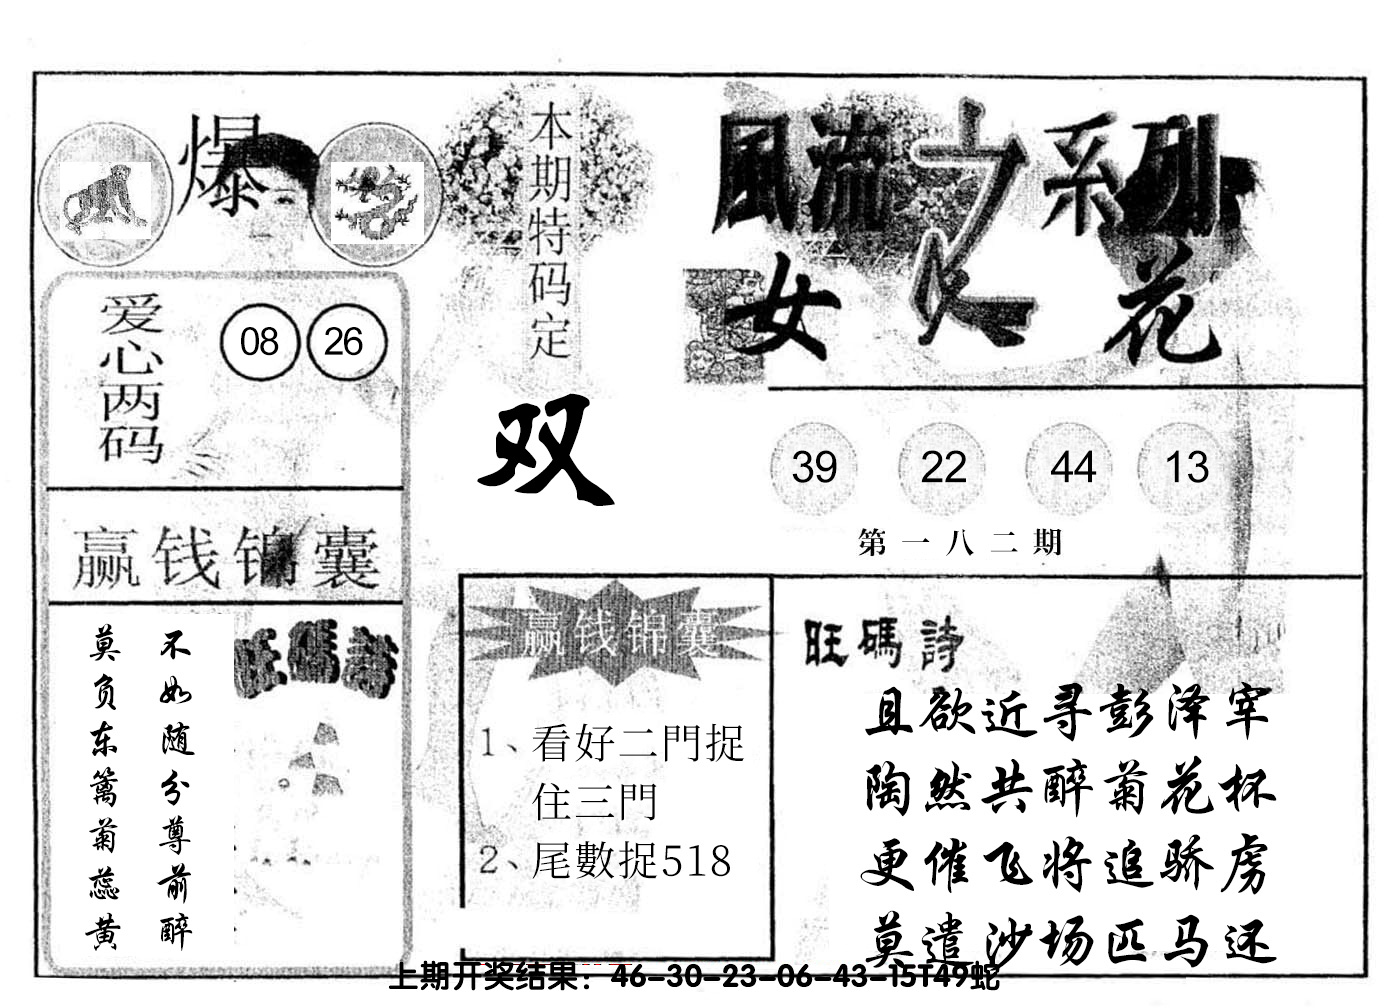 爆
本期特码定
双
風流之系列
女人花
爱心两码
08 26
39 22 44 13
第一八二期
赢钱锦囊
旺碼詩
不如随分尊前醉
莫负东篱菊蕊黄
赢钱锦囊
1、看好二門捉
住三門
2、尾數捉518
旺碼詩
且欲近寻彭泽宰
陶然共醉菊花杯
更催飞将追骄虏
莫遣沙场匹马还
上期开奖结果：46-30-23-06-43-15T49蛇